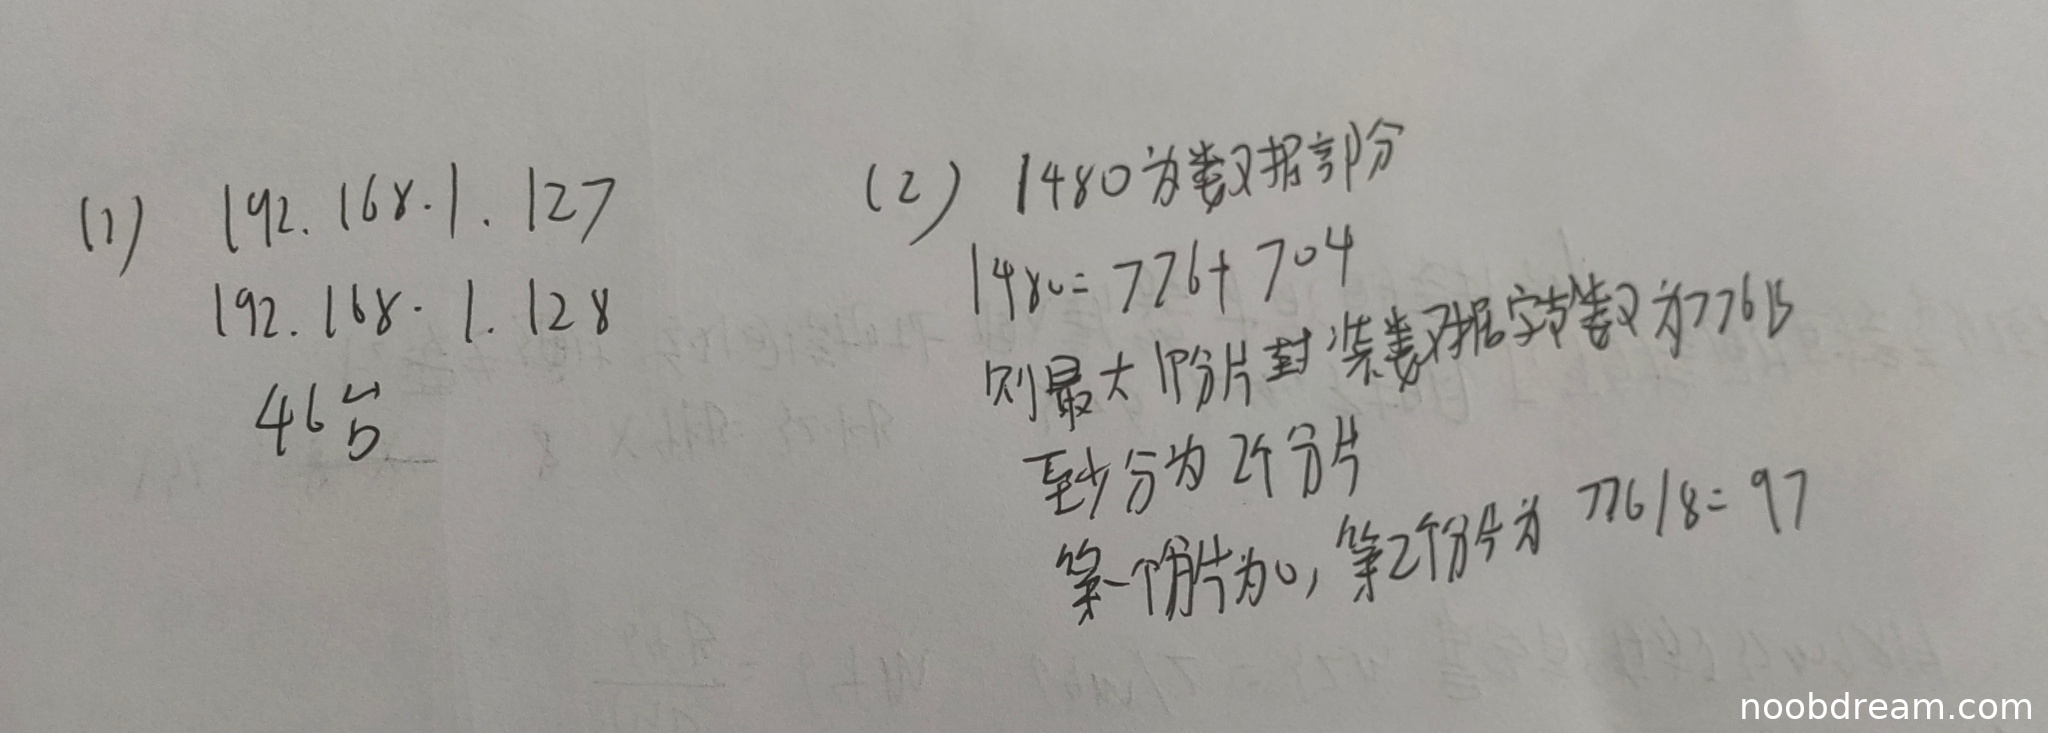 (1) 192.168.1.127
192.168.1.128
46
(2) 1480为数据部分
1480=776+704
则最大IP分片封装数据字节数为776B
至少分为2个分片
第一个分片为0,第2个分片为 776/8=97
noobdream.com